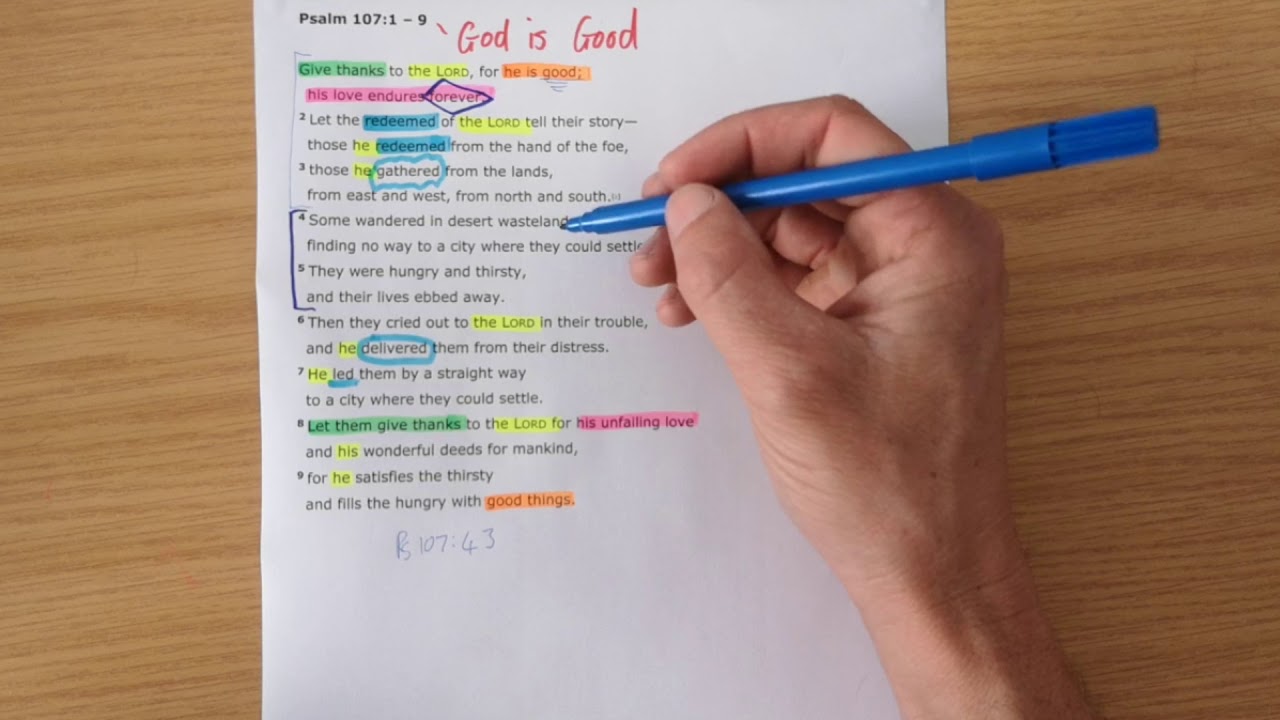 Psalm 107:1 – 9
God is Good
Give thanks to the LORD, for he is good;
his love endures forever.
2 Let the redeemed of the LORD tell their story—
those he redeemed from the hand of the foe,
3 those he gathered from the lands,
from east and west, from north and south.
4 Some wandered in desert wasteland
finding no way to a city where they could settle
5 They were hungry and thirsty,
and their lives ebbed away.
6 Then they cried out to the LORD in their trouble,
and he delivered them from their distress.
7 He led them by a straight way
to a city where they could settle.
8 Let them give thanks to the LORD for his unfailing love
and his wonderful deeds for mankind,
9 for he satisfies the thirsty
and fills the hungry with good things.
Ps 107:43